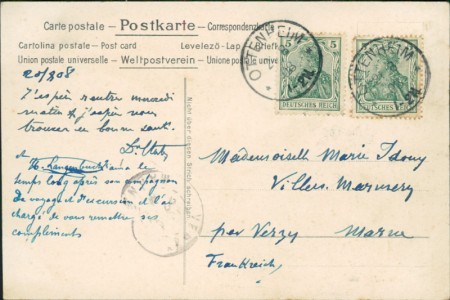 Carte postale - Postkarte - Correspondenzkarte
Cartolina postale - Post card Levelező-Lap -
Union postale universelle - Weltpostverein - Unione postale
20/3 08
J'espère rentrer mercredi
matin & j'espère vous
trouver en bonne santé.
5 5
OTTENHEIM
OTTENHEIM
DEUTSCHES REICH DEUTSCHES REICH
Nicht über diesen Strich schreiben
le
temps long après son compagnon
de voyage et d'excursion et l'a
chargé de vous remettre ses
compliments
Mademoiselle Marie
Villers Marmery
per Verzy Marne
Frankreich